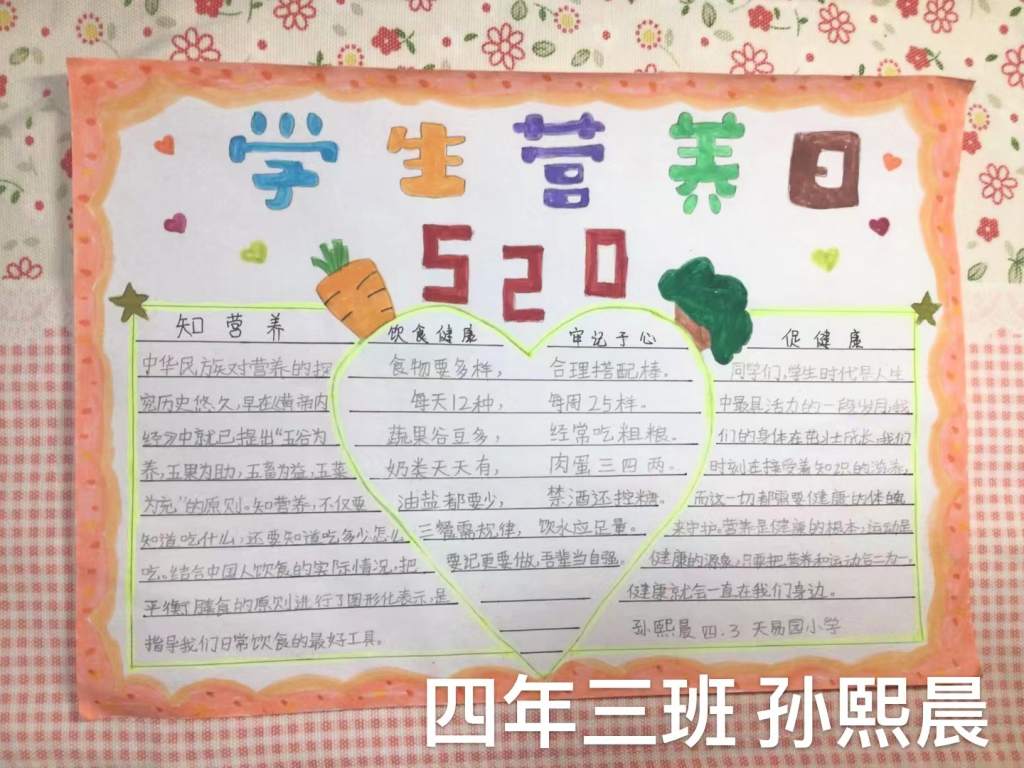 学生营养日
520
知营养
中华民族对营养的探
究历史悠久,早在《黄帝内
经》中就已提出“五谷为
养,五果为助,五畜为益,五菜
为充”的原则。知营养,不仅要
知道吃什么,还要知道吃多少,怎么
吃。结合中国人饮食的实际情况,把
平衡膳食的原则进行了图形化表示,是
指导我们日常饮食的最好工具。
饮食健康 牢记于心
食物要多样, 合理搭配棒。
每天12种, 每周25样。
蔬果谷豆多, 经常吃粗粮。
奶类天天有, 肉蛋三四两。
油盐都要少, 禁酒还控糖。
三餐需规律, 饮水应足量。
要记更要做,吾辈当自强。
促健康
同学们,学生时代是人生
中最具活力的一段岁月,我
们的身体在茁壮成长,我们
时刻在接受着知识的滋养,
而这一切都需要健康的体魄
来守护,营养是健康的根本,运动是
健康的源泉,只要把营养和运动合二为一,
健康就会一直在我们身边。
孙熙晨 四.3 天易园小学
四年三班 孙熙晨